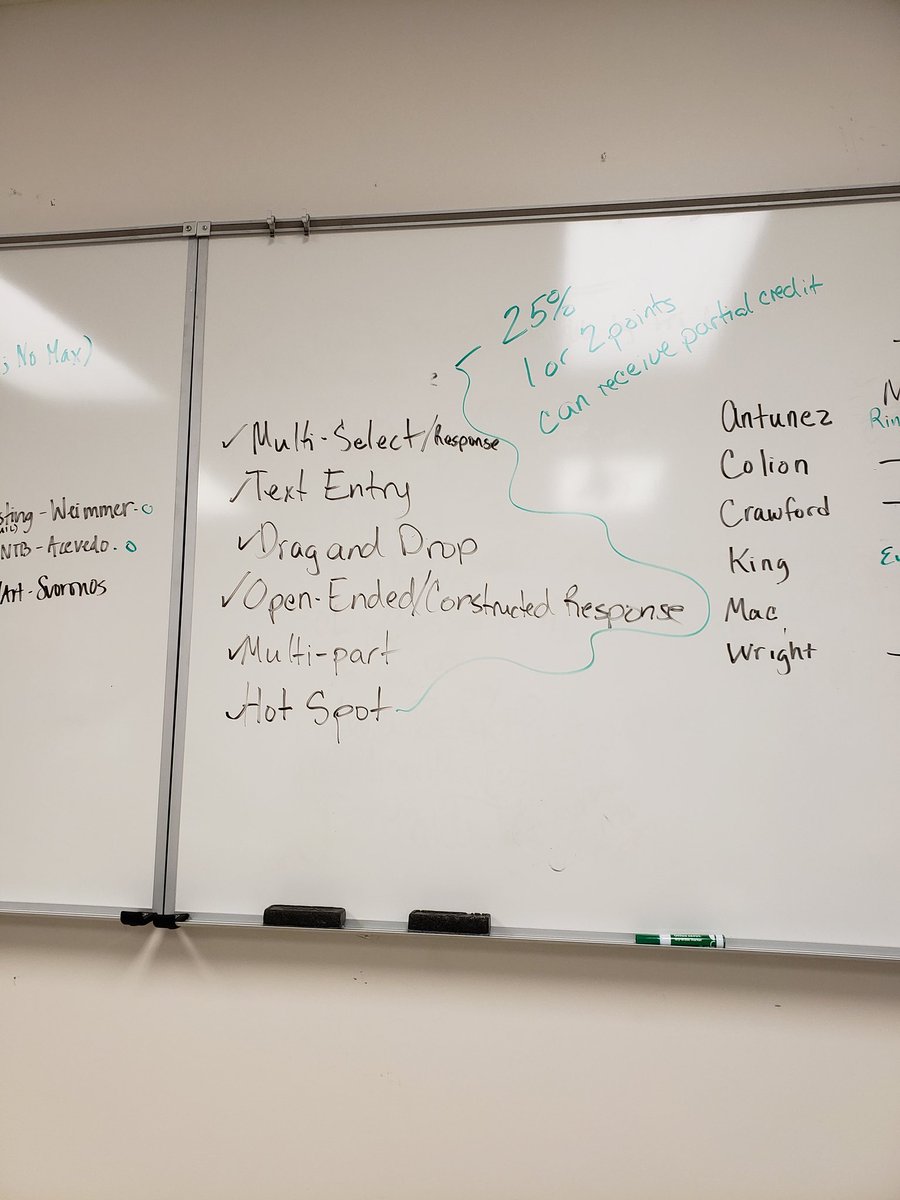 ; No Max)
sting - Weimmer - o
NTB - Acevedo. o
/Art - Svoronos
25%
1 or 2 points
can receive partial credit
✓ Multi-Select/Response
✓ Text Entry
✓ Drag and Drop
✓ Open-Ended/Constructed Response
✓ Multi-part
✓ Hot Spot
Antunez
Colion
Crawford
King
Mac
Wright
M
Rin